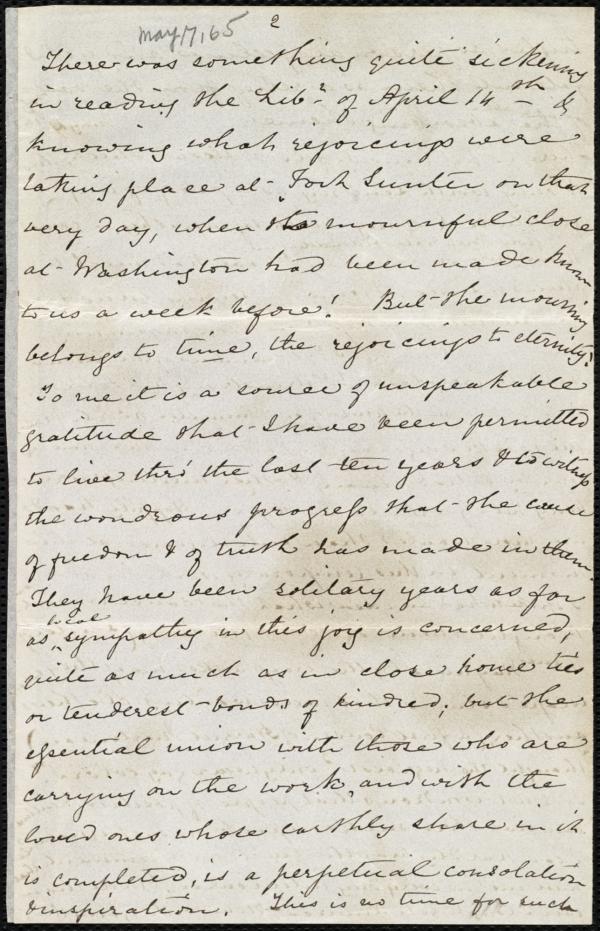 May 7, 65
2
There was something quite sickening
in reading the Lib.r of April 14th &
knowing what rejoicings were
taking place at Fort Sumter on that
very day, when the mournful close
at Washington had been made known
to us a week before! But the mourning
belongs to time, the rejoicings to eternity.
To me it is a source of unspeakable
gratitude that I have been permitted
to live thro' the last ten years & to witness
the wondrous progress that the cause
of freedom & of truth has made in them.
They have been solitary years as far
as local sympathy in this joy is concerned,
quite as much as in close home ties
or tenderest bonds of kindred; but the
essential union with those who are
carrying on the work, and with the
loved ones whose earthly share in it
is completed, is a perpetual consolation
& inspiration. This is no time for such